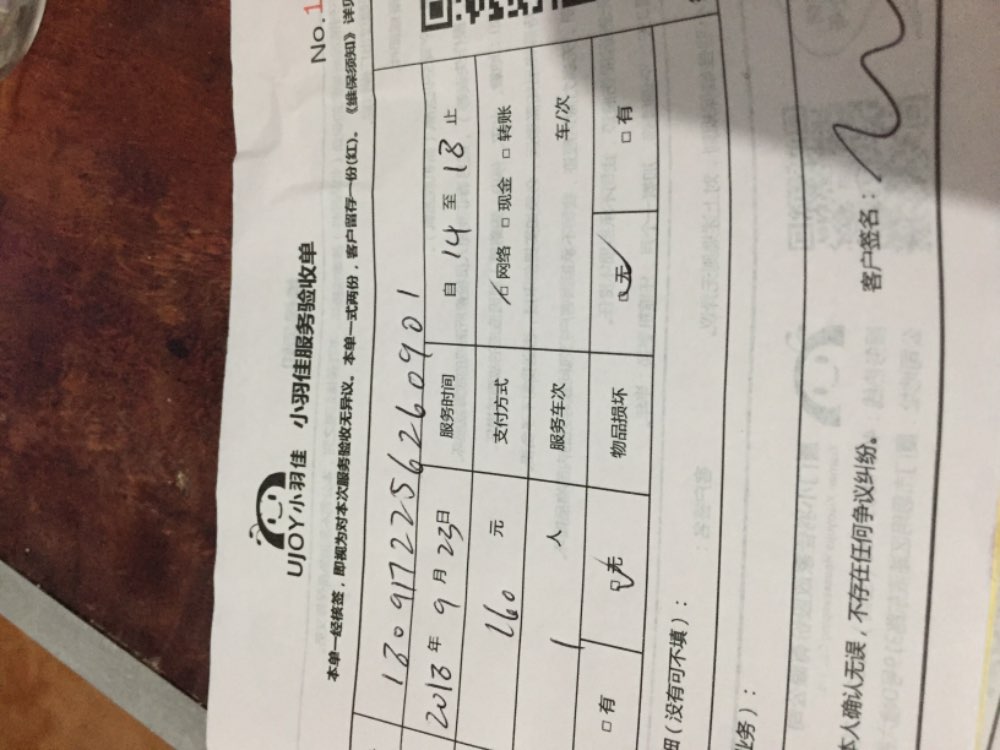 No.1
UJOY小羽佳 小羽佳服务验收单
本单一经核签，即视为对本次服务验收无异议。本单一式两份，客户留存一份(红)。《维保须知》详见
1809172256260901
2018年9月23日 服务时间 自 14 至 18 止
160 元 支付方式 □网络 □现金 □转账
1 人 服务车次 车/次
□有 □无 物品损坏 □无 □有
细（没有可不填）：
业务）：
本人确认无误，不存在任何争议纠纷。 客户签名：